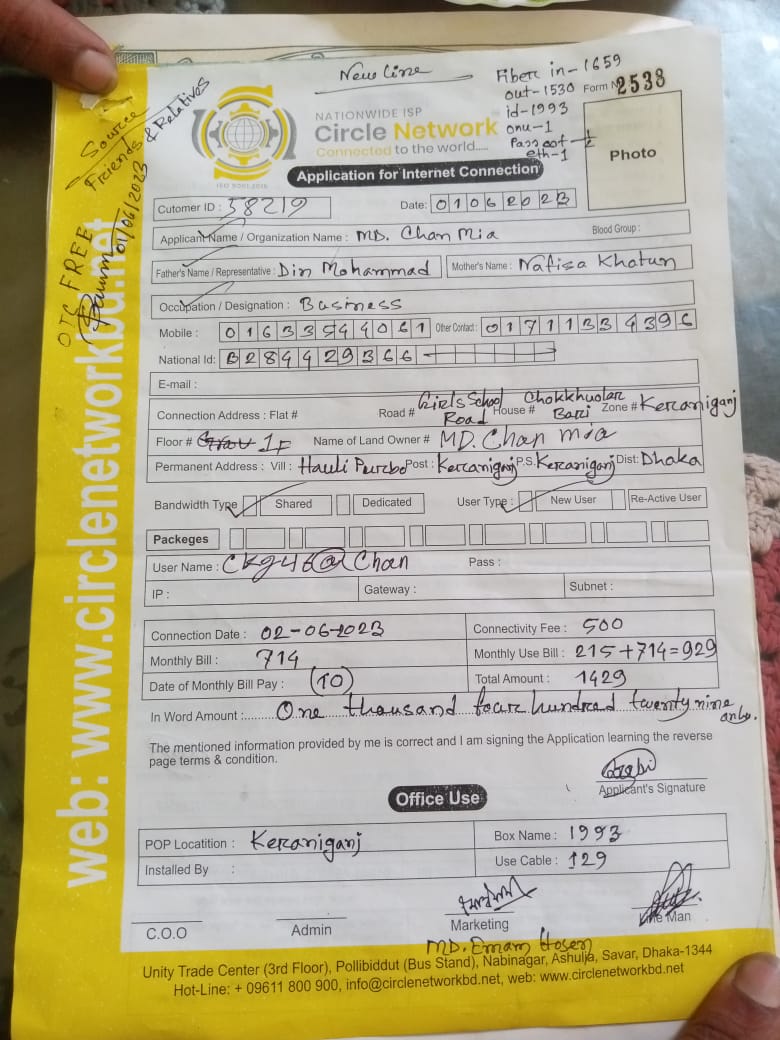 New Line
Fiber in-1659
out-1530 Form No 2538
id-1993
onu-1
eth-1
Source
Friends & Relatives
OTC FREE
01/06/2023
NATIONWIDE ISP
Circle Network
Connected to the world.....
ISO 9001:2015
Application for Internet Connection
Photo
Cutomer ID : 38219 Date: 01062023
Applicant Name / Organization Name : MD. Chan Mia Blood Group :
Father's Name / Representative : Din Mohammad Mother's Name : Nafisa Khatun
Occupation / Designation : Business
Mobile : 01633544061 Other Contact : 01711334396
National Id: 284429366
E-mail :
Connection Address : Flat # Road # Girls School Road House # Chokkhuolar Bari Zone # Keraniganj
Floor # 1F Name of Land Owner # MD. Chan mia
Permanent Address : Vill : Hauli Purbo Post : Keraniganj P.S. Keraniganj Dist: Dhaka
Bandwidth Type Shared Dedicated User Type : New User Re-Active User
Packeges
User Name : Ckg46@Chan Pass :
IP : Gateway : Subnet :
Connection Date : 02-06-2023 Connectivity Fee : 500
Monthly Bill : 714 Monthly Use Bill : 215+714=929
Date of Monthly Bill Pay : (10) Total Amount : 1429
In Word Amount :........ One thousand four hundred twenty nine only.
The mentioned information provided by me is correct and I am signing the Application learning the reverse
page terms & condition.
Applicant's Signature
Office Use
POP Locatition : Keraniganj Box Name : 1993
Installed By : Use Cable : 129
C.O.O Admin Marketing Line Man
MD. Emam Hosen
Unity Trade Center (3rd Floor), Pollibiddut (Bus Stand), Nabinagar, Ashulia, Savar, Dhaka-1344
Hot-Line: + 09611 800 900, info@circlenetworkbd.net, web: www.circlenetworkbd.net
web: www.circlenetworkbd.net